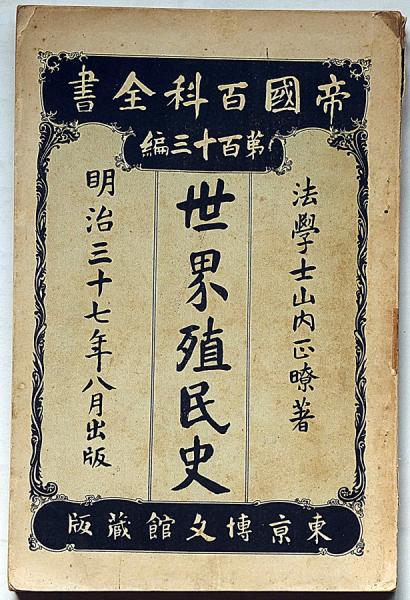 帝國百科全書
第百十三編
法學士山内正瞭著
世界殖民史
明治三十七年八月出版
東京博文館藏版